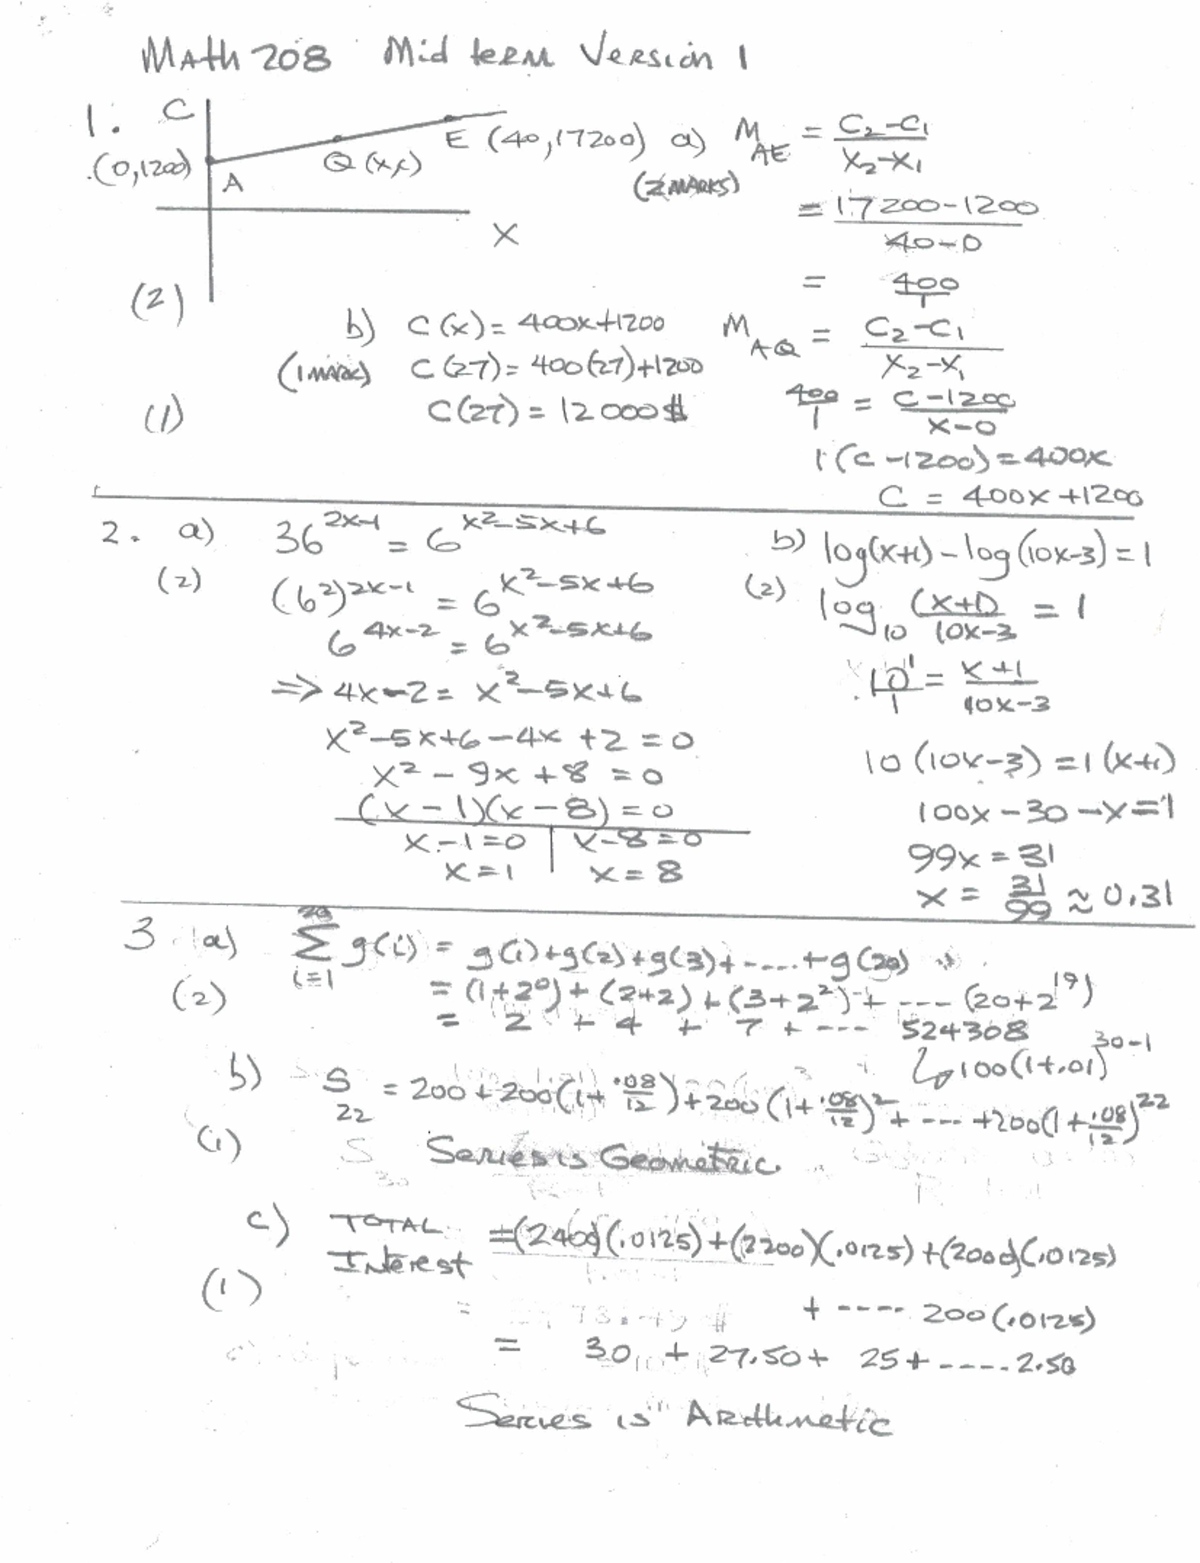 Math 208 Mid term Version 1
1. C
(0,1200) A Q (x,c) E (40,17200)
X
(2)
a) M_AE = (C₂-C₁)/(X₂-X₁)
(2 MARKS)
= (17200-1200)/(40-0)
= 400/1
M_AQ = (C₂-C₁)/(X₂-X₁)
400/1 = (C-1200)/(X-0)
1(C-1200) = 400x
C = 400x+1200
b) C(x) = 400x+1200
(1 mark) C(27) = 400(27)+1200
(1) C(27) = 12000$
2. a) 36^(2x-1) = 6^(x²-5x+6)
(2) (6²)^(2x-1) = 6^(x²-5x+6)
6^(4x-2) = 6^(x²-5x+6)
=> 4x-2 = x²-5x+6
x²-5x+6-4x+2=0
x²-9x+8=0
(x-1)(x-8)=0
x-1=0 | x-8=0
x=1 | x=8
b) log(x+1)-log(10x-3)=1
(2) log₁₀ (x+1)/(10x-3) = 1
10¹/1 = (x+1)/(10x-3)
10(10x-3)=1(x+1)
100x-30-x=1
99x=31
x = 31/99 ≈ 0.31
3. a) Σ_(i=1)^20 g(i) = g(1)+g(2)+g(3)+----+g(20)
(2) = (1+2⁰)+(2+2)+(3+2²)+---(20+2¹⁹)
= 2 + 4 + 7 + --- 524308
↳100(1+.01)^(30-1)
b) S₂₂ = 200+200(1+.08/12)+200(1+.08/12)²+---+200(1+.08/12)²²
(1) Series is Geometric.
c) TOTAL Interest =(2400)(.0125)+(2200)(.0125)+(2000)(.0125)
(1) +----200(.0125)
= 30 + 27.50+ 25+----2.50
Series is Arithmetic